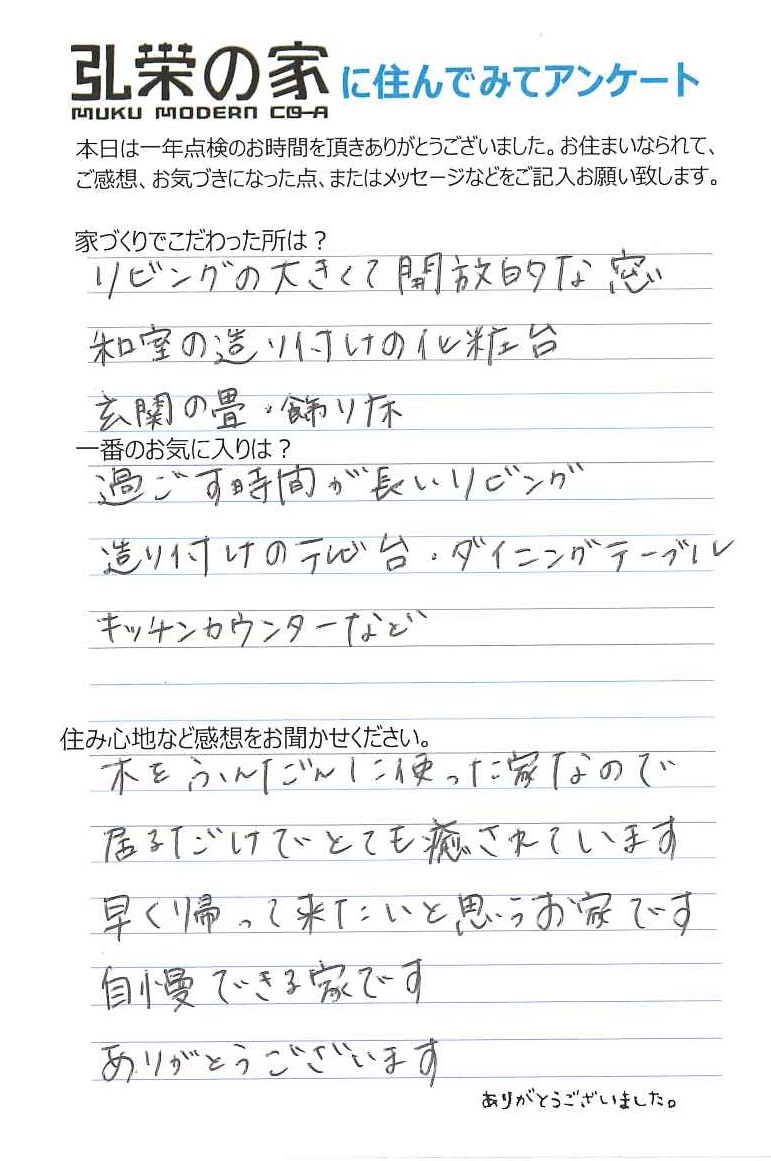 弘栄の家に住んでみてアンケート
MUKU MODERN CO-A
本日は一年点検のお時間を頂きありがとうございました。お住まいなられて、
ご感想、お気づきになった点、またはメッセージなどをご記入お願い致します。
家づくりでこだわった所は？
リビングの大きくて開放的な窓
和室の造り付けの化粧台
玄関の畳・飾り床
一番のお気に入りは？
過ごす時間が長いリビング
造り付けのテレビ台・ダイニングテーブル
キッチンカウンターなど
住み心地など感想をお聞かせください。
木をふんだんに使った家なので
居るだけでとても癒されています
早く帰って来たいと思うお家です
自慢できる家です
ありがとうございます
ありがとうございました。